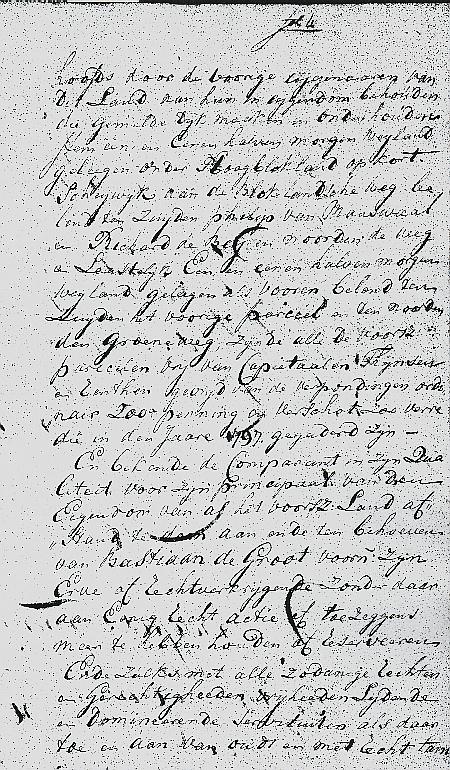 fol 4
hoofds door de voorige eijgenaaren van
Dit Land aan hun in eijgendom behouden
die gemelde Dijk maaken en onderhouden
Item een en Eenen halven morgen weyland
geleegen onder Hoogblokland op kort
Scheijwyk aan de Bloklandsche weg be
lend ten Zuyden philip van Maaswaal
en Richard de en noorden de weeg
en Laastelijk Een en eenen halven morgen
weyland gelegen als vooren belend ten
Zuyden het voorige parceel en ten noorden
den Groeneweg, zynde alle de voorsz:
parceelen vry van Capitaalen Thynsen
en Renthen gevryd van de verpondingen ordi
nair 200e penning en verschot zoo verre
die in den Jaare 1797 gegaderd zyn –
En bekende de Comparant in zyn Qua
liteit voor zyn principaal van den
Eigendom van al het voorsz: Land af
Stand te doen aan ende ten behoeven
van Bastiaan de Groot voorn: zyn
Erve of rechtverkrygende zonder daar
aan Eenig recht actie of toezeggens
meer te hebben houden of reserveeren
Ende zulks met alle zodanige rechten
en Gerechtigheeden vryheeden Lydende
en Domineerende Servituiten als daar
toe en aan van ouds en met recht zam